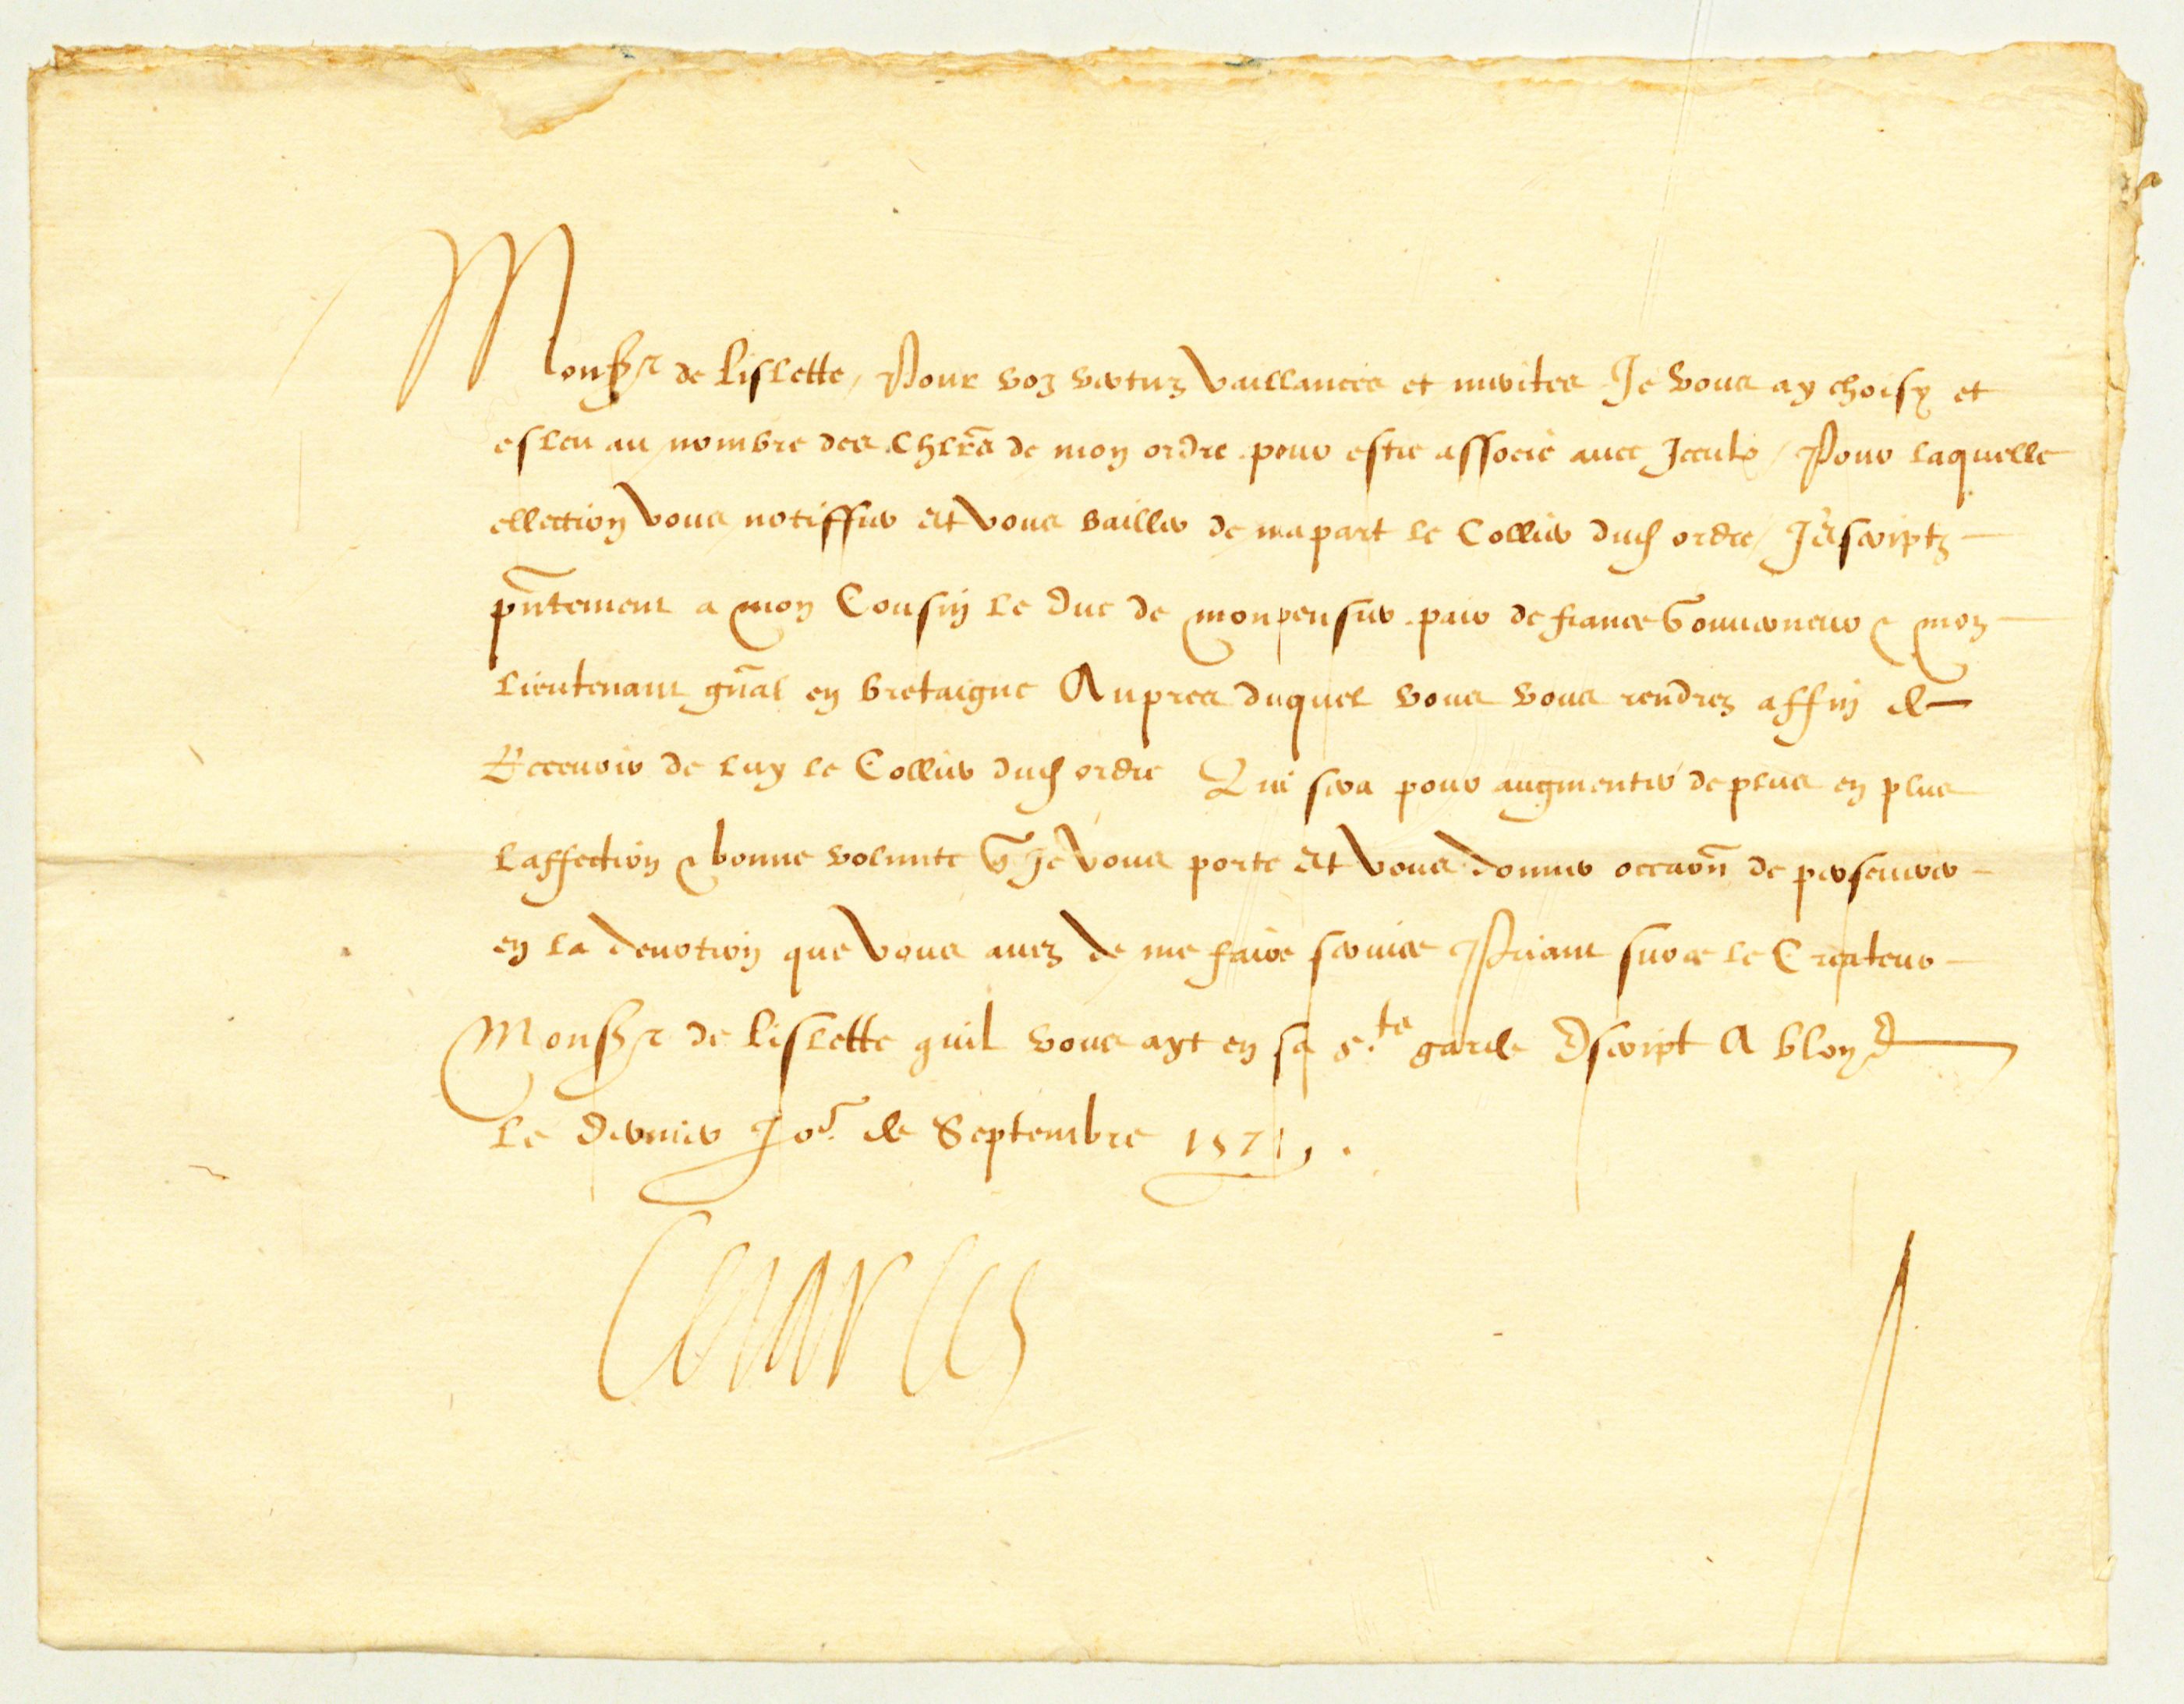 Monsr de Lislette, Pour voz vertuz vaillances et merites Je vous ay choisy et
esleu au nombre des chlrs de mon ordre pour estre associé avec Iceulx / Pour laquelle
ellection vous notiffier Et vous bailler de ma part le Collier dud ordre / J'escriptz
pntement a mon Cousin le duc de monpensier pair de france Gouverneur & mon
lieutenant gnal en bretaigne Aupres duquel vous vous rendrez affin de
Recevoir de luy le Collier dud ordre Qui sera pour augmenter de plus en plus
laffection & bonne volunte q Je vous porte Et vous donner occaon de perseverer
en la devotion que vous avez de me faire service Priant sur ce le Createur
Monsr de Lislette quil vous ayt en sa ste garde Escript A bloys
le dernier Jor de Septembre 1571.
Charles